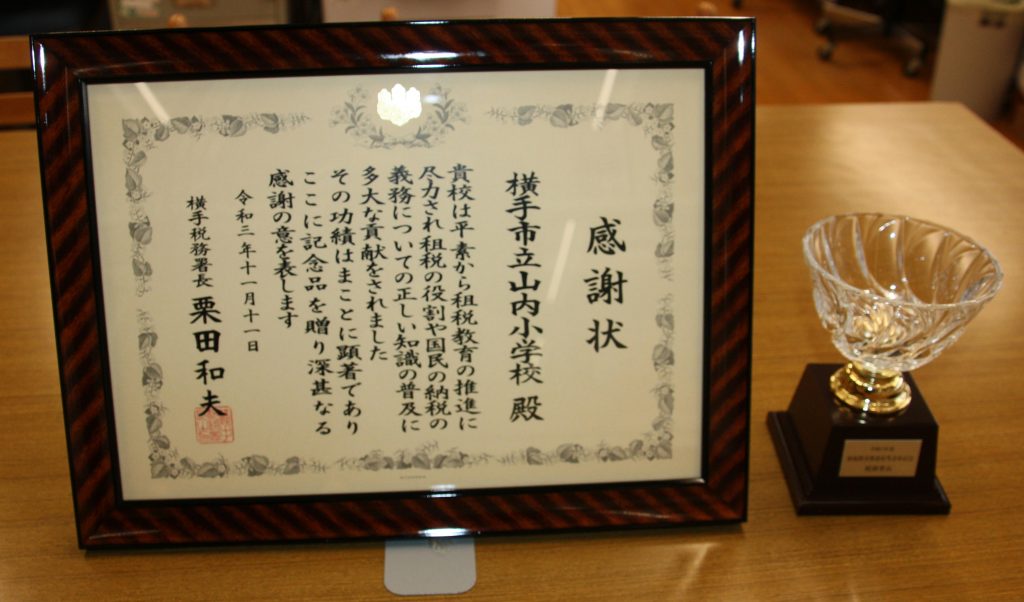 感謝状
横手市立山内小学校 殿
貴校は平素から租税教育の推進に
尽力され租税の役割や国民の納税の
義務についての正しい知識の普及に
多大な貢献をされました
その功績はまことに顕著であり
ここに記念品を贈り深甚なる
感謝の意を表します
令和三年十一月十一日
横手税務署長 栗田和夫